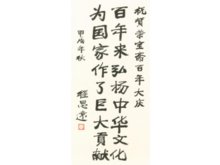 祝贺荣宝斋百年大庆
百年来弘扬中华文化
为国家作了巨大贡献
甲戌年秋
程思远